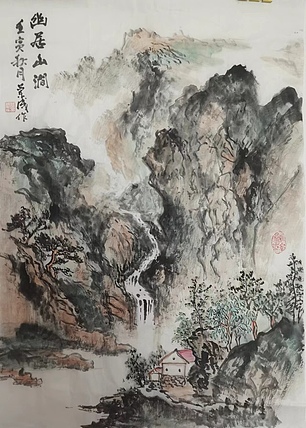 幽居山涧
壬寅秋月
作